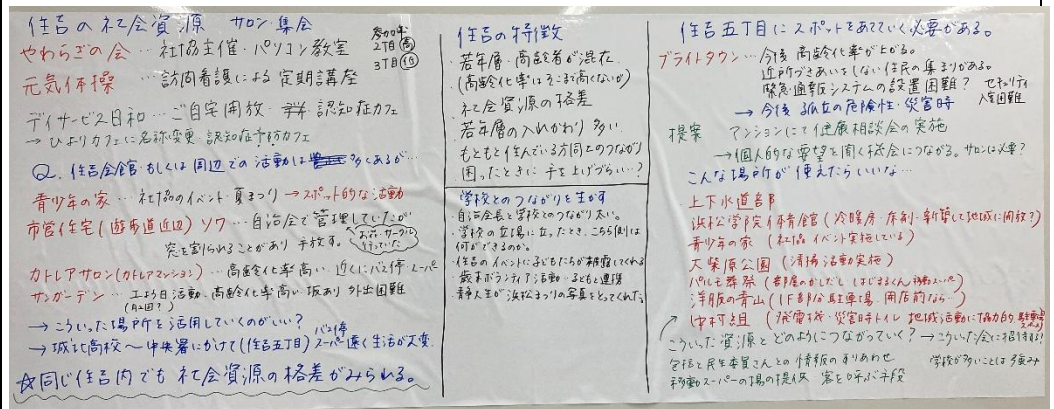 住吉の社会資源 サロン・集会
やわらぎの会…社協主催・パソコン教室
参加率
2丁目 高
3丁目 低
元気体操 …訪問看護による定期講座
デイサービス日和…ご自宅開放・認知症カフェ
→ひよりカフェに名称変更・認知症予防カフェ
Q. 住吉会館もしくは周辺での活動は多くあるが…
青少年の家…社協のイベント・夏まつり→スポット的な活動
市営住宅(遊歩道近辺)ソワ…自治会で管理していたが
お茶・サークル
行っていた
窓を割られることがあり手放す。
カトレアサロン(カトレアマンション)…高齢化率高い 近くにバス停・スーパー
サンガーデン…土よう日活動・高齢化率高い 坂あり 外出困難
(月2回?)
→こういった場所を活用していくのがいい?
→城北高校〜中央署にかけて(住吉五丁目)バス停スーパー遠く生活が大変
☆同じ住吉内でも社会資源の格差がみられる。
住吉の特徴
・若年層・高齢者が混在
(高齢化率はそこまで高くないが)
・社会資源の格差
・若年層の入れかわり多い
・もともと住んでいる方同士のつながり
・困ったときに手を上げづらい…?
学校とのつながりを生かす
・自治会長と学校とのつながり太い。
・学校の立場に立ったとき、こちら側は
何ができるのか。
・住吉のイベントに子どもたちが披露してくれる
・歳末ボランティア活動・子どもと連携
・青少人生が浜松まつりの写真をとってくれた。
住吉五丁目にスポットをあてていく必要がある。
ブライトタウン…今後高齢化率が上がる。
近所づきあいをしない住民の集まりがある。
緊急通報システムの設置困難? セキュリティ
入室困難
→今後 孤立の危険性・災害時
提案 マンションにて健康相談会の実施
→個人的な要望を聞く機会につながる。サロンは必要?
こんな場所が使えたらいいな…
・上下水道部
・浜松学院体育館(冷暖房・有利・新築して地域に開放?)
・青少年の家(社協イベント実施している)
・大柴原公園(清掃活動実施)
・パルモ葬祭(部屋のかしだし はじまるくん 移動スーパー)
・洋服の青山(1F部分駐車場、開店前なら…)
・中村組(発電機・災害時トイレ 地域活動に協力的 駐車場
こういった資源とどのようにつながっていく?→こういった会に招待する?
包括と民生委員さんとの情報のすりあわせ 学校が多いことは強み
移動スーパーの場の提供 客を呼ぶ手段